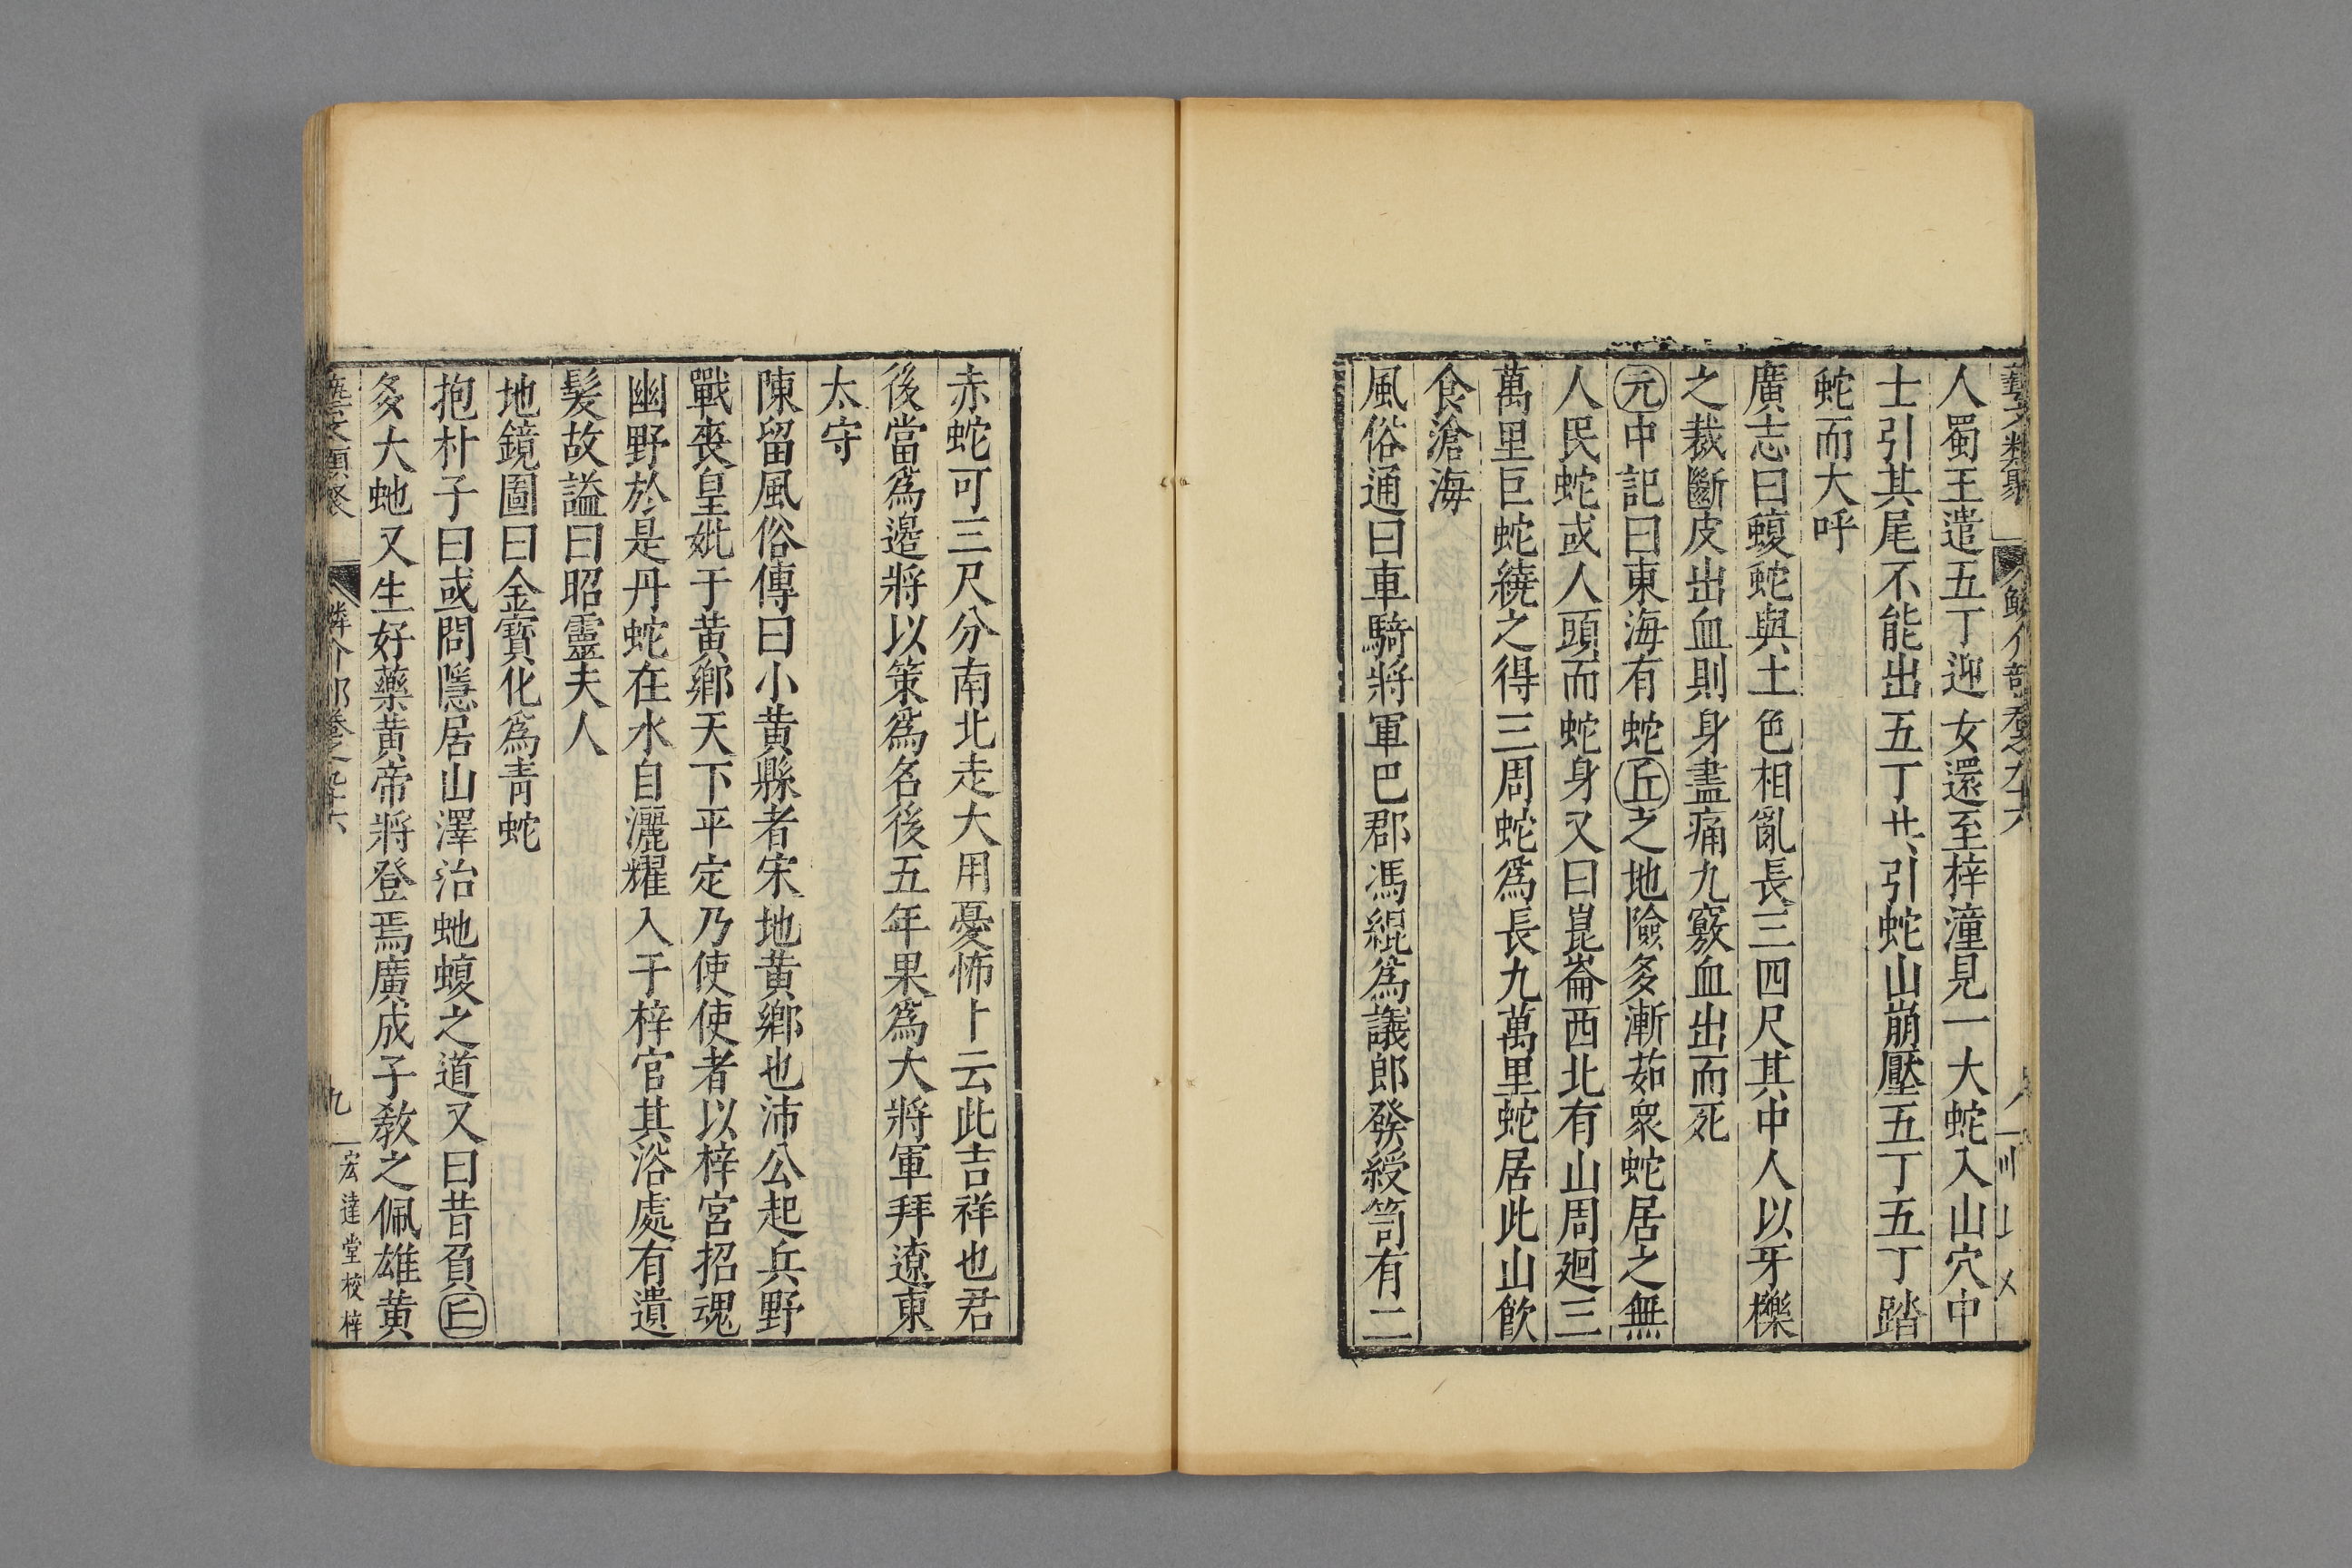 人蜀王遣五丁迎女還至梓潼見一大蛇入山穴中
士引其尾不能出五丁共引蛇山崩壓五丁五丁踏
蛇而大呼
廣志曰蝮蛇與土色相亂長三四尺其中人以牙櫟
之裁斷皮出血則身盡痛九竅血出而死
元中記曰東海有蛇丘之地險多漸茹衆蛇居之無
人民蛇或人頭而蛇身又曰崑崙西北有山周廻三
萬里巨蛇繞之得三周蛇爲長九萬里蛇居此山飲
食滄海
風俗通曰車騎將軍巴郡馮緄爲議郎發綬笥有二
赤蛇可三尺分南北走大用憂怖卜云此吉祥也君
後當爲邉將以策爲名後五年果爲大將軍拜遼東
太守
陳留風俗傳曰小黄縣者宋地黄鄉也沛公起兵野
戰喪皇妣于黄鄉天下平定乃使使者以梓宮招魂
幽野於是丹蛇在水自灑耀入于梓宮其浴處有遺
髮故謚曰昭靈夫人
地鏡圖曰金寶化爲青蛇
抱朴子曰或問隱居山澤治虵蝮之道又曰昔負丘
多大虵又生好藥黄帝將登焉廣成子敎之佩雄黄
藝文類聚 鱗介部卷之九十六 九 宏達堂校梓